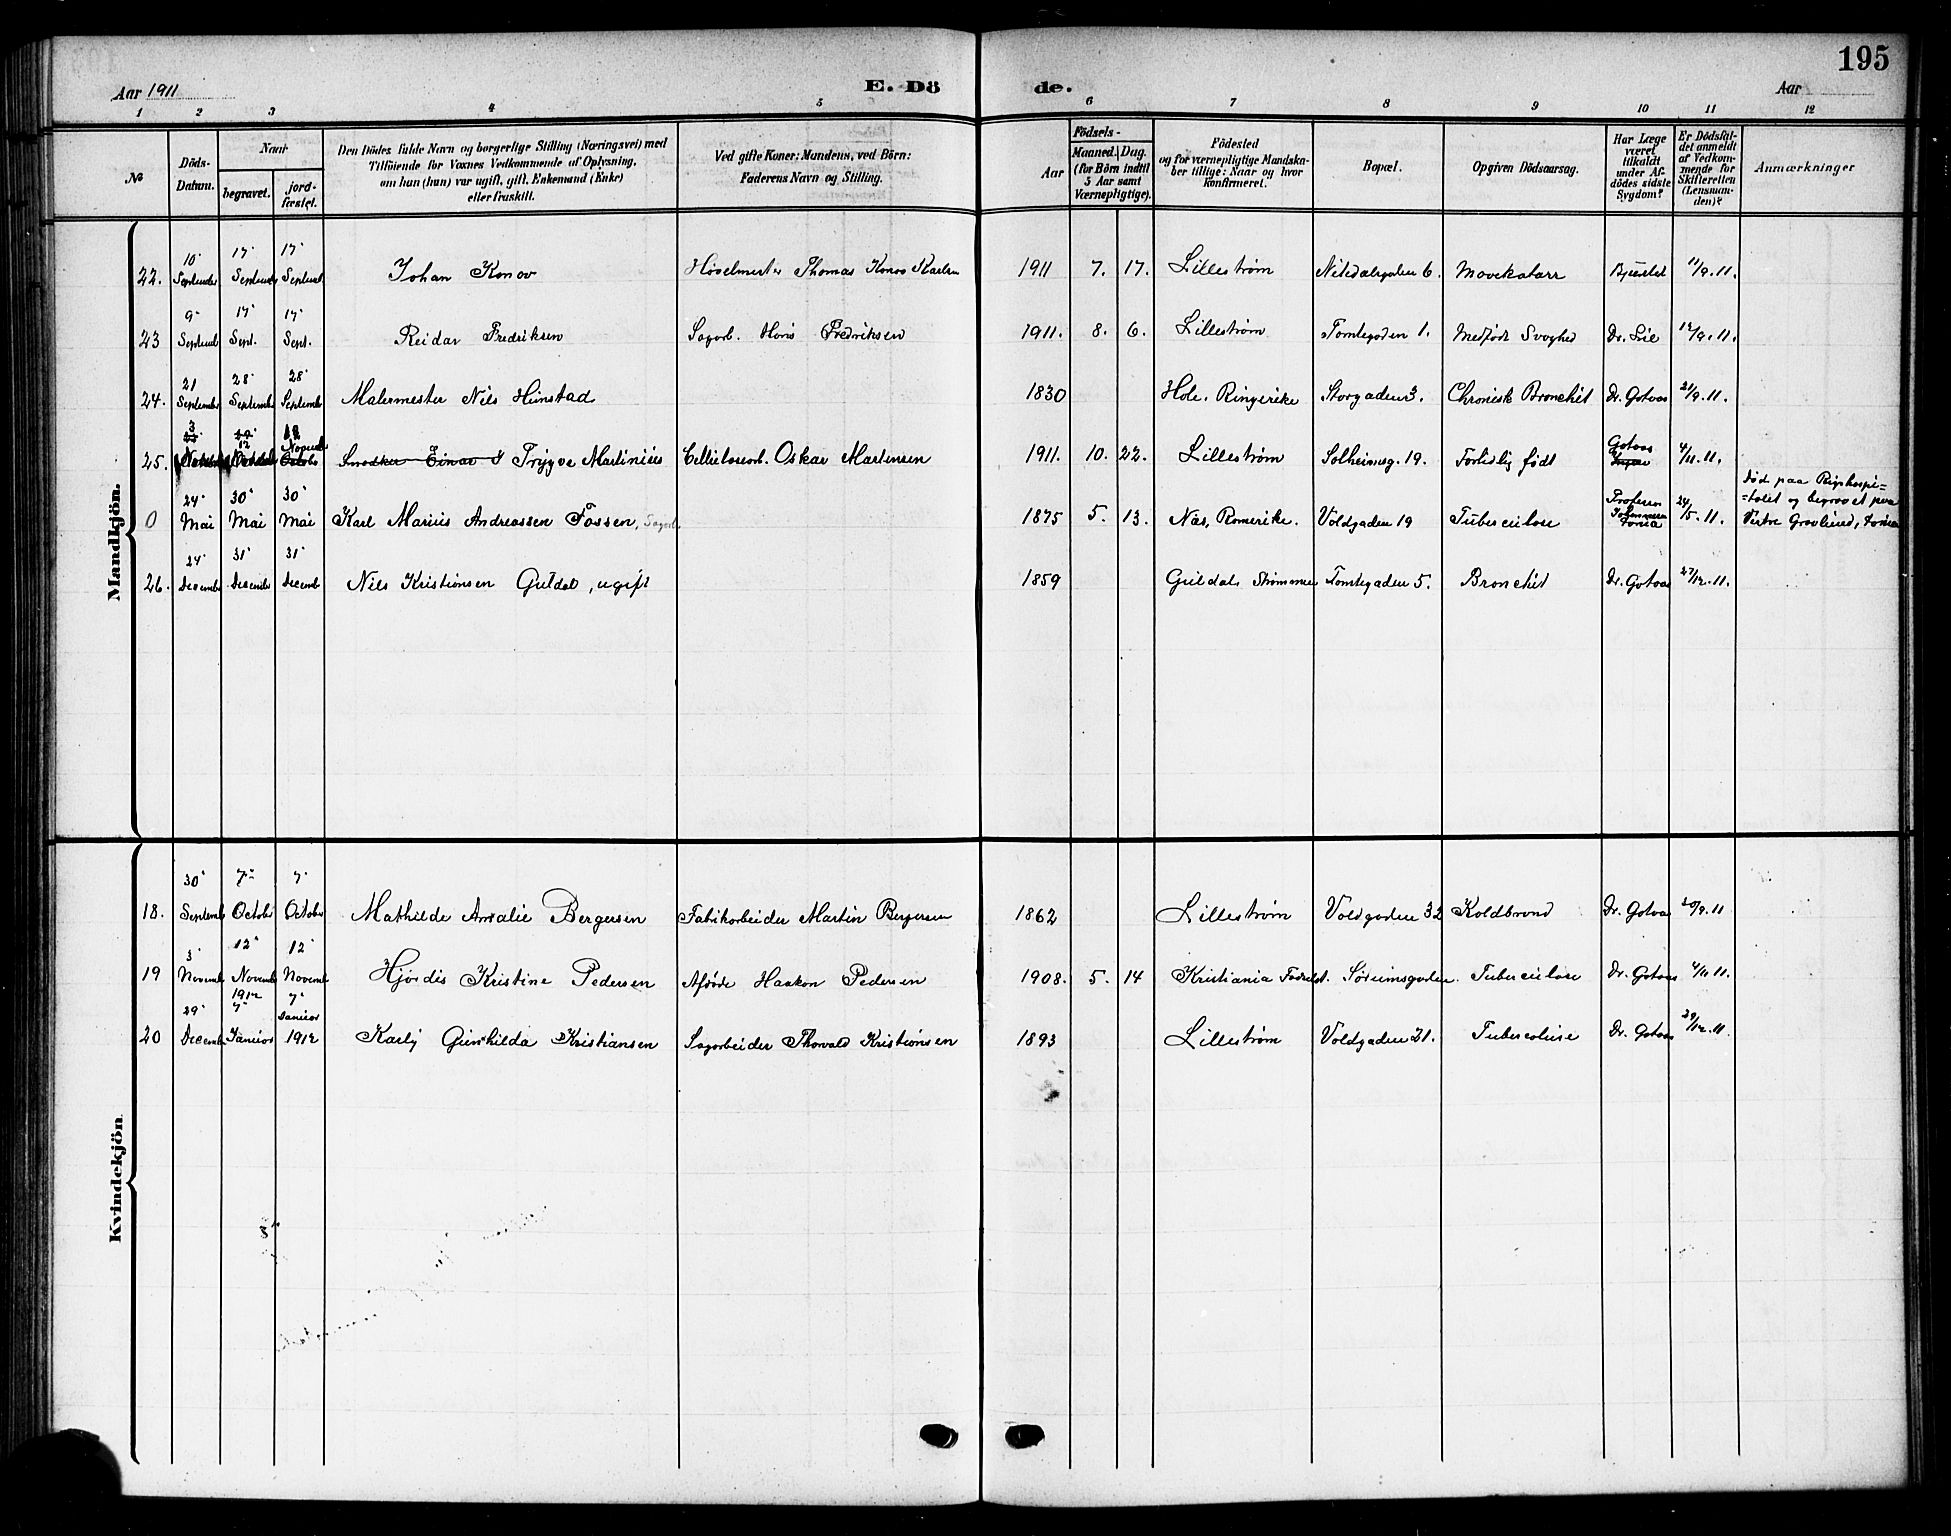 195
Aar 1911 E. Dö de. Aar
1 2 3 4 5 6 7 8 9 10 11 12
No
Döds-Datum.
Naar
begravet.
jord-fæstet.
Den Dödes fulde Navn og borgerlige Stilling (Næringsvei) med
Tilföiende for Voxnes Vedkommende af Oplysning,
om han (hun) var ugift, gift, Enkemand (Enke)
eller fraskilt.
Ved gifte Koner: Mandens, ved Börn:
Faderens Navn og Stilling.
Födsels-
Aar
Maaned. Dag.
(for Börn indtil
5 Aar samt
Værnepligtige).
Födested
og for værnepligtige Mandska-
ber tillige: Naar og hvor
konfirmeret.
Bopæl.
Opgiven Dödsaarsag.
Har Læge
været
tilkaldt
under Af-
dödes sidste
Sygdom?
Er Dödsfal-
det anmeldt
af Vedkom-
mende for
Skifteretten
(Lensman-
den)?
Anmærkninger
Mandkjön.
22. 10 September 17 September 17 Septemb. Johan Konov Høvelmester Thomas Konov Karlsen 1911 7. 17. Lillestrøm Nitedalsgaden 6. Mavekatarr Bjørstad 11/9.11.
23 9 Septemb 17 Sept. 17 Sept. Reidar Fredriksen Sagarb. Hans Fredriksen 1911. 8. 6. Lillestrøm Tomtegaden 1. Medfødt Svaghed Dr. Lie 12/9.11.
24. 21 September 28 September 28 Septemb Malermester Nils Hunstad 1830 Hole, Ringerike Storgaden 3. Chronisk Bronchit Dr. Gotaas 21/9.11.
25. 3 12 12 Novemb Octobr Einar Trygve Martinius Cellulosearb. Oskar Martinsen 1911. 10. 22. Lillestrøm Solheimsg. 19. Fortidlig født Gotaas 4/11.11.
0 24 Mai 30 Mai 30 Mai Karl Marius Andreassen Fossen, Sagarb. 1875 5. 13. Næs, Romerike. Voldgaden 19 Tuberculose Professor Johannessen 24/5.11. Død paa Rigshospi=
=talet og begravet paa
Vestre Gravlund,
26. 24 Decembr 31 Decembr 31 Decemb Nils Kristiansen Guldal, ugift 1859 Guldal, Strømmen Tomtegaden 5. Bronchit Dr. Gotaas 27/12.11.
Kvindekjön
18. 30 Septemb 7 October 7 October Mathilde Amalie Bergersen Fabrikarbeider Martin Bergersen 1862 Lillestrøm Voldgaden 32 Koldbrand Dr. Gotaas 30/9.11
19 3 Novemb 12 Novemb 12 Novemb Hjørdis Kristine Pedersen Afdøde Haakon Pedersen 1908. 5. 14 Kristiania Fødselst. Sørumsgaden. Tuberculose Dr. Gotaas 4/11 11.
20 29 Decemb 1912 7 Januar 7 Januar 1912 Karly Gunhilda Kristiansen Sagarbeider Thorvald Kristiansen 1893 Lillestrøm Voldgaden 21. Tuberculose Dr. Gotaas 29/12.11.